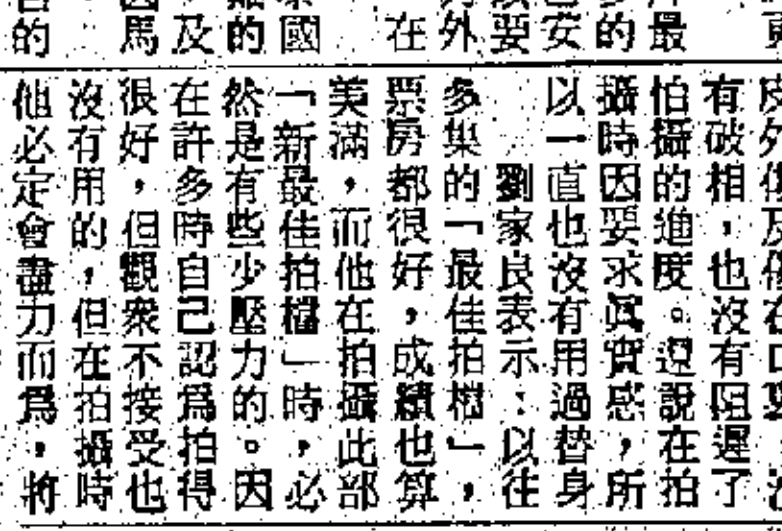 最
的
安
要
外
在
國
的
及
馬
的
有破相，也沒有阻遲了
怕攝的進度。還說在拍
攝時因要求眞實感，所
以一直也沒有用過替身
劉家良表示：以往
多集的「最佳拍檔」，
票房都很好，成績也算
美滿，而他在拍攝此部
「新最佳拍檔」時，必
然是有些少壓力的。因
在許多時自己認爲拍得
很好，但觀衆不接受也
沒有用的，但在拍攝時
他必定會盡力而爲，將